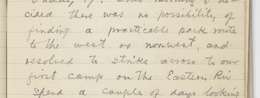 cided there was no possibility of
finding a practicable pack route
to the west or norwest, and
resolved to strike across to our
first camp on the Eastern Riv
spend a couple of days looking